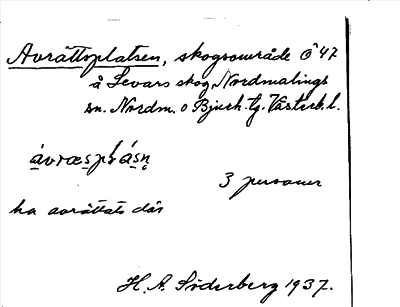 Avrättsplatsen, skogsområde Ö 47
å Levars skog, Nordmalings
sn. Nordm. o Bjurh. tg. Västerb. l.
ávræsplásn̥
3 personer
ha avrättats där
H. A. Söderberg 1937.